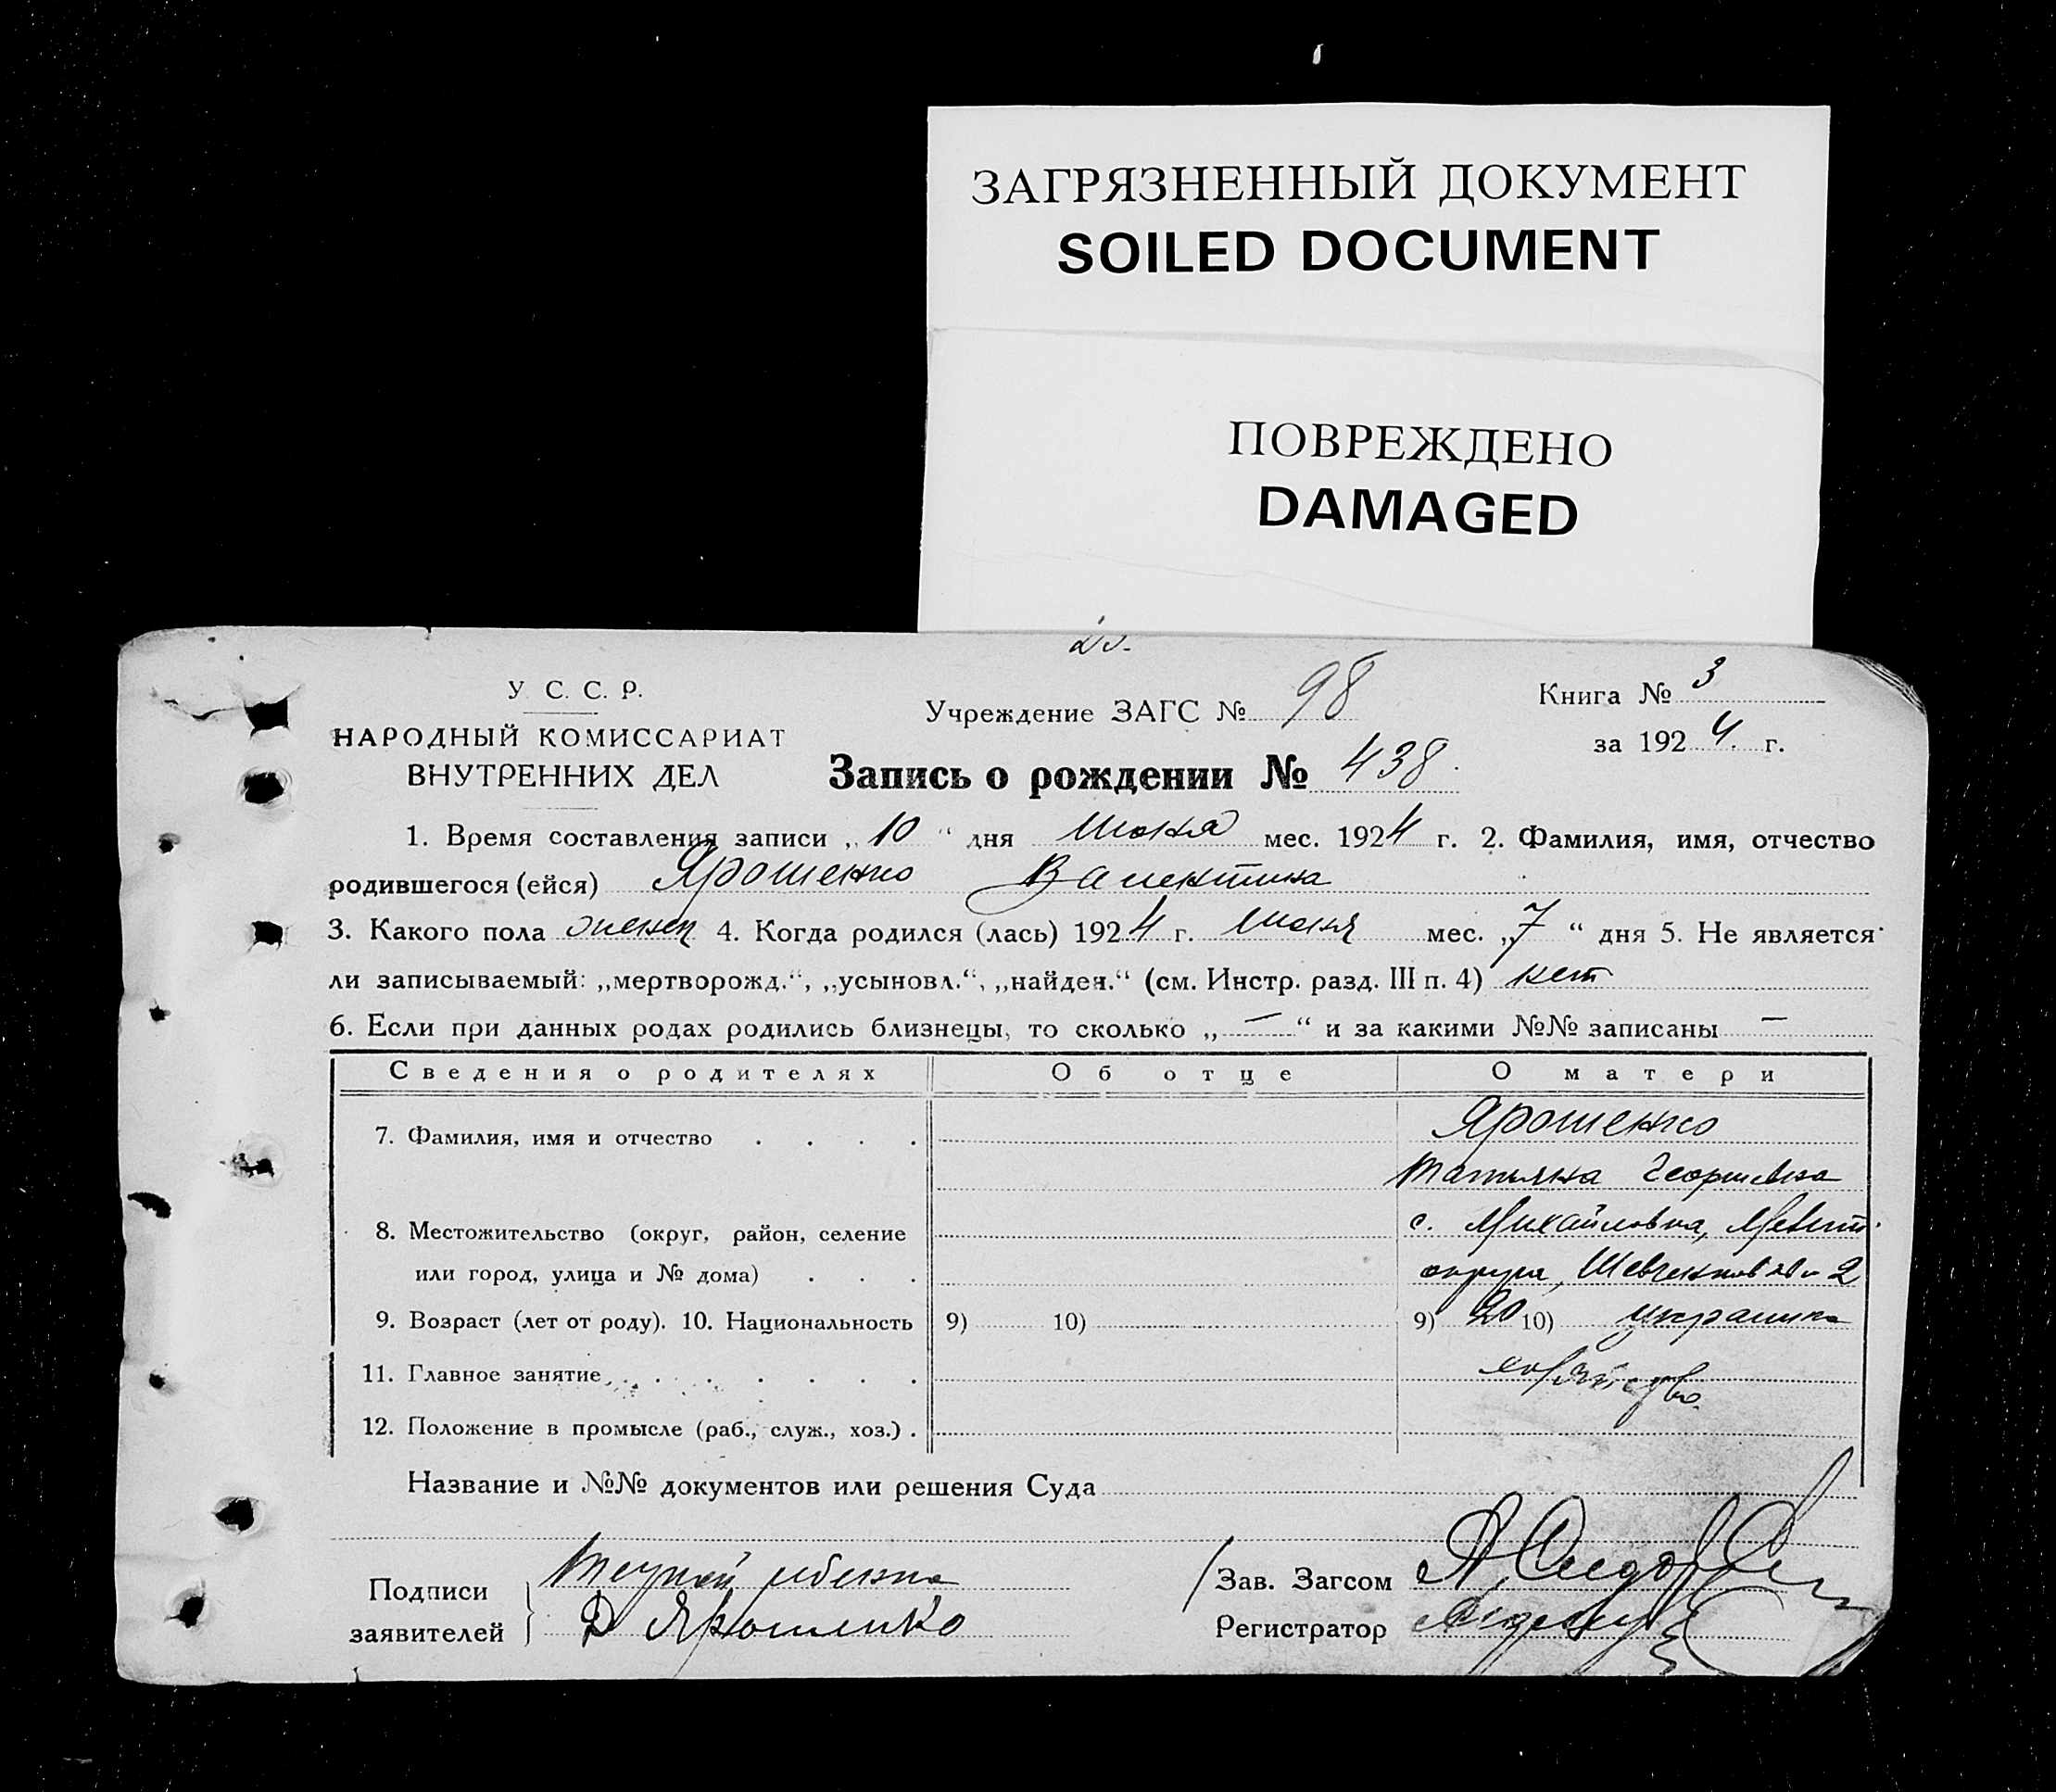 ЗАГРЯЗНЕННЫЙ ДОКУМЕНТ
SOILED DOCUMENT
ПОВРЕЖДЕНО
DAMAGED
У. С. С. Р.
НАРОДНЫЙ КОМИССАРИАТ
ВНУТРЕННИХ ДЕЛ
Учреждение ЗАГС № 98
Книга № 3
за 1924 г.
Запись о рождении № 438.
1. Время составления записи „10“ дня Июня мес. 1924 г. 2. Фамилия, имя, отчество
родившегося (ейся) Ярошенко Валентина
3. Какого пола женск 4. Когда родился (лась) 1924 г. Июня мес. „7“ дня 5. Не является
ли записываемый: „мертворожд.“, „усыновл.“, „найден.“ (см. Инстр. разд. III п. 4) нет
6. Если при данных родах родились близнецы, то сколько „—“ и за какими №№ записаны —
Сведения о родителях Об отце О матери
7. Фамилия, имя и отчество . . . . Ярошенко
Татьяна Георгиевна
8. Местожительство (округ, район, селение с. Михайловка, Мелит.
или город, улица и № дома) . . . округа, 2
9. Возраст (лет от роду). 10. Национальность 9) 10) 9) 20 10) украинка
11. Главное занятие . . . . . . .
12. Положение в промысле (раб., служ., хоз.) .
Название и №№ документов или решения Суда
Подписи
заявителей
Д Ярошенко
Зав. Загсом
Регистратор